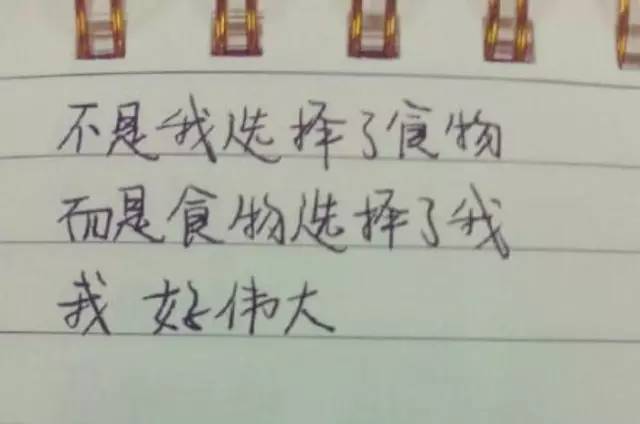 不是我选择了食物
而是食物选择了我
我好伟大